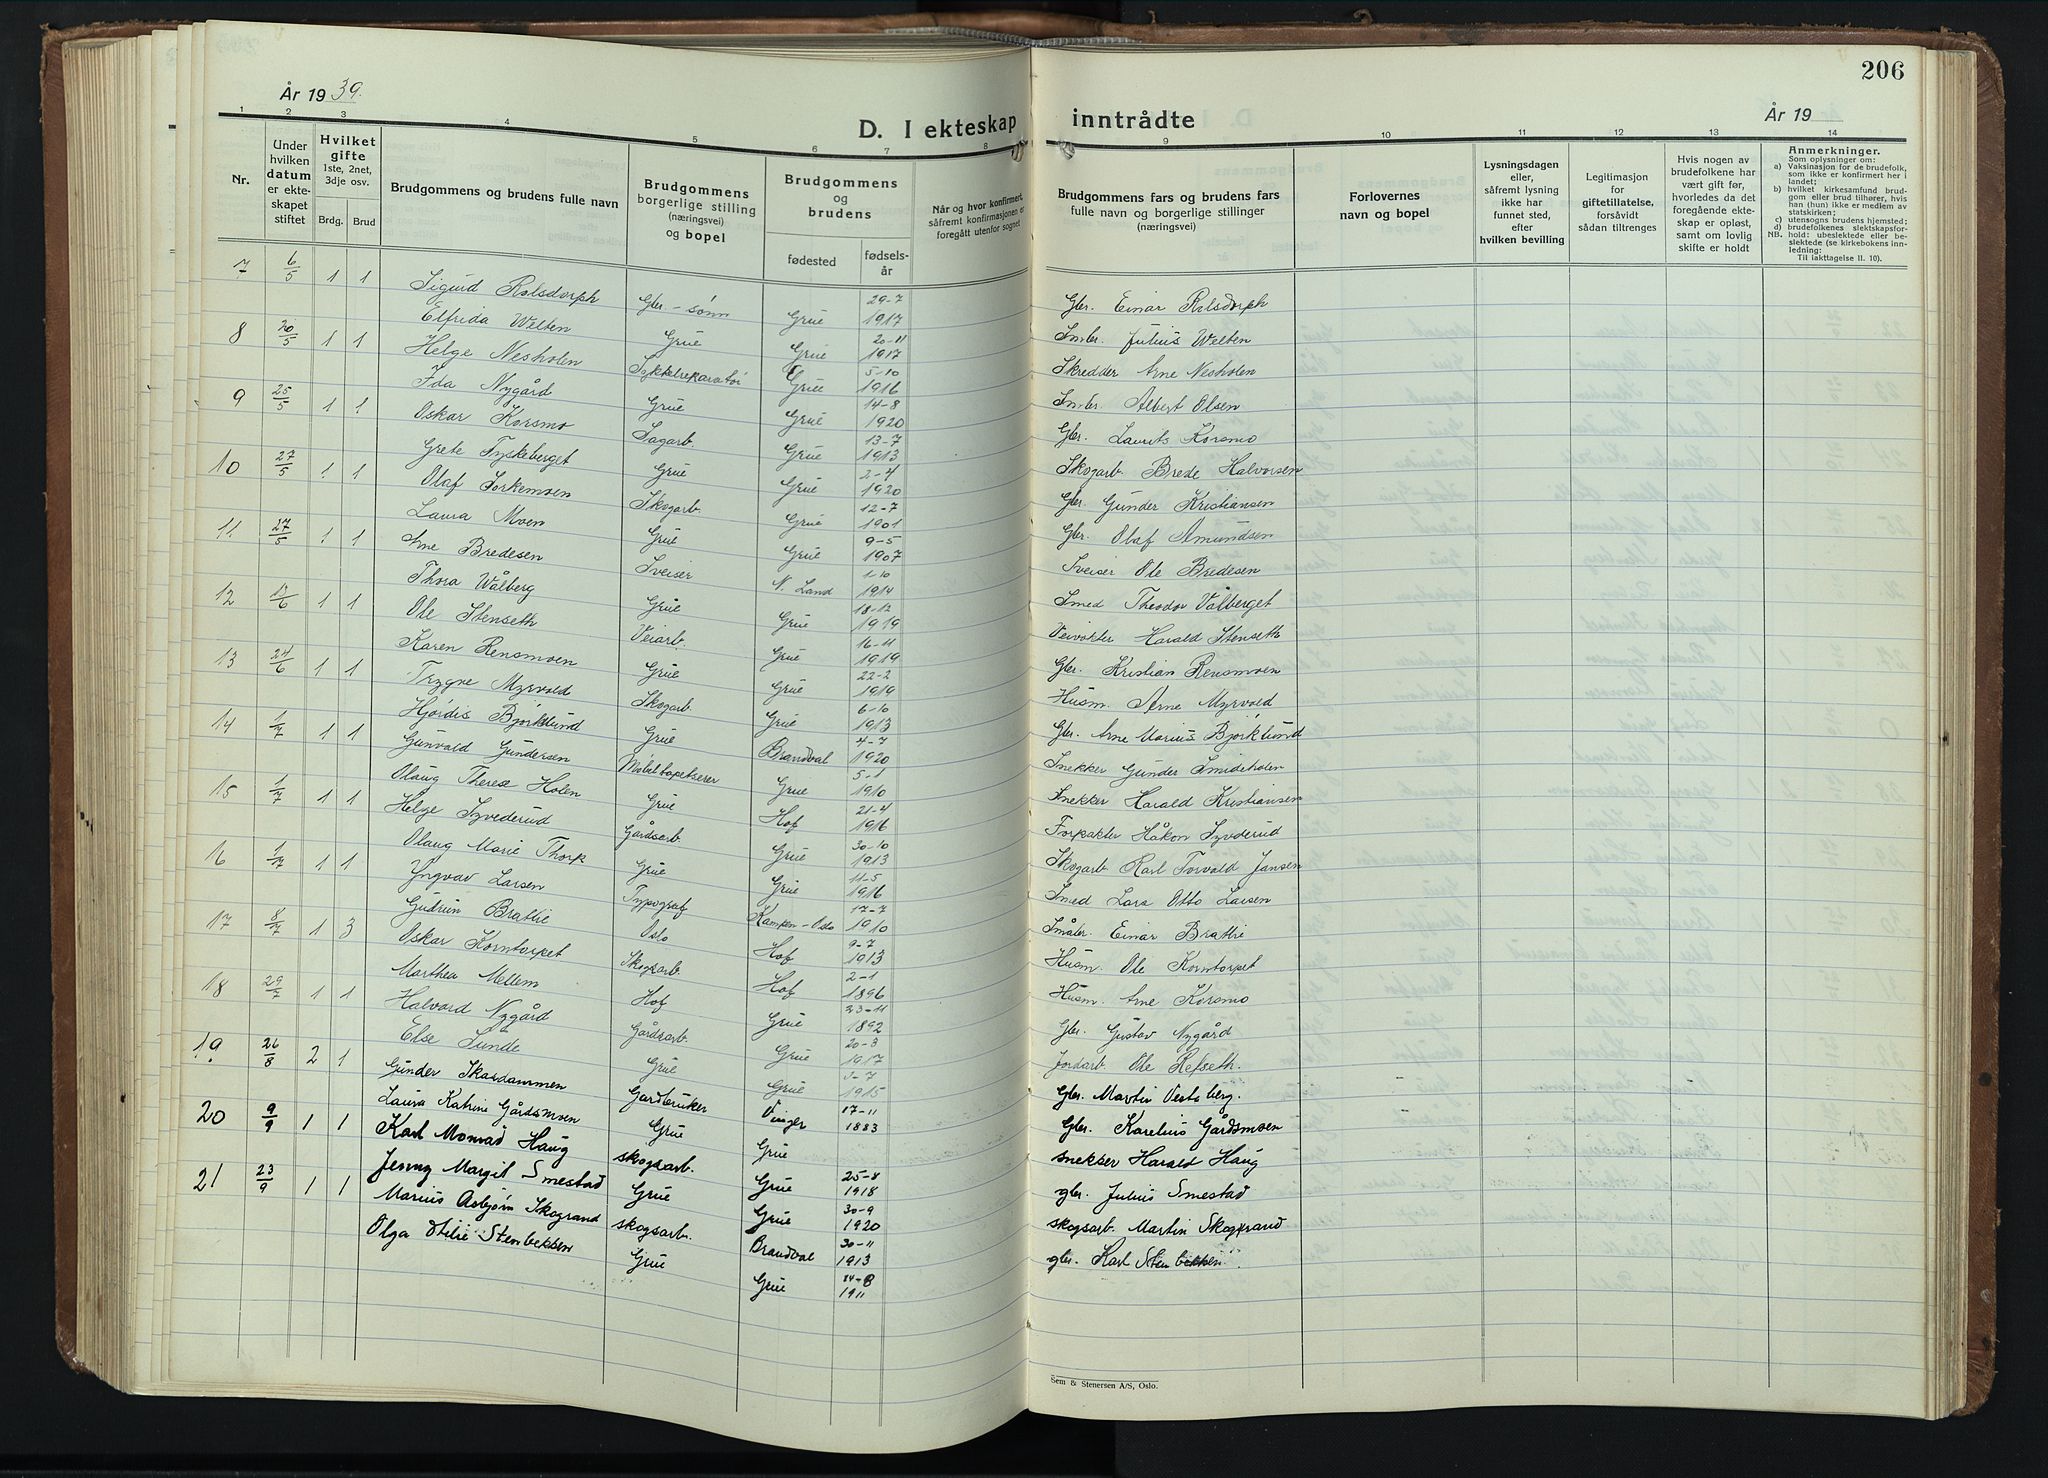 206
År 1939.
År 19
D. I ekteskap inntrådte
1 2 3 4 5 6 7 8 9 10 11 12 13 14
Nr.
Under hvilken datum er ekteskapet stiftet
Hvilket gifte 1ste, 2net, 3dje osv.
Brdg. Brud
Brudgommens og brudens fulle navn
Brudgommens borgerlige stilling (næringsvei) og bopel
Brudgommens og brudens
fødested
fødselsår
Når og hvor konfirmert, såfremt konfirmasjonen er foregått utenfor sognet
Brudgommens fars og brudens fars fulle navn og borgerlige stillinger (næringsvei)
Forlovernes navn og bopel
Lysningsdagen eller, såfremt lysning ikke har funnet sted, efter hvilken bevilling
Legitimasjon for giftetillatelse, forsåvidt sådan tiltrenges
Hvis nogen av brudefolkene har vært gift før, hvorledes da det foregående ekteskap er opløst, samt om lovlig skifte er holdt
Anmerkninger.
Som oplysninger om:
a) Vaksinasjon for de brudefolk, som ikke er konfirmert her i landet;
b) hvilket kirkesamfund brudgom eller brud tilhører, hvis han (hun) ikke er medlem av statskirken;
c) utensogns brudens hjemsted;
d) brudefolkenes slektskapsforhold: ubeslektede eller beslektede (se kirkebokens innledning:
NB.
Til iakttagelse II. 10).
7 6/5 1 1 Sigurd Rolsdorph Gbr.-sønn Grue 29-7 1917 Gbr. Einar Rolsdorph
Elfrida Welten Grue Grue 20-11 1917 Smbr. Julius Welten
8 20/5 1 1 Helge Nesholen Sykkelreparatør Grue 5-10 1916 Skredder Arne Nesholen
Ida Nygård Grue Grue 14-8 1920 Smbr. Albert Olsen
9 25/5 1 1 Oskar Korsmo Sagarb. Grue 13-7 1913 Gbr. Laurits Korsmo
Grete Tyskeberget Grue Grue 2-4 1920 Skogarb. Brede Halvorsen
10 27/5 1 1 Olaf Torkemoen Skogarb. Grue 12-7 1901 Gbr. Gunder Kristiansen
Laura Moen Grue Grue 9-5 1907 Gbr. Olaf Amundsen
11 27/5 1 1 Arne Bredesen Sveiser N. Land 1-10 1914 Sveiser Ole Bredesen
Thora Wålberg Grue Grue 18-12 1919 Smed Theodor Vålberget
12 /6 1 1 Ole Stenseth Veiarb. Grue 16-11 1919 Veivokter Harald Stenseth
Karen Rensmoen Grue Grue 22-2 1919 Gbr. Kristian Rensmoen
13 24/6 1 1 Trygve Myrvold Skogarb. Grue 6-10 1913 Husm. Arne Myrvold
Hjørdis Bjørklund Grue Brandval 4-7 1920 Gbr. Arne Marius Bjørklund
14 1/7 1 1 Gunvald Gundersen Møbeltapetserer Grue 5-1 1910 Snekker Gunder Smideholen
Olaug Therese Holen Grue Hof 21-4 1916 Snekker Harald Kristiansen
15 1/7 1 1 Helge Syvderud Gårdsarb. Grue 30-10 1913 Forpakter Håkon Syvderud
Olaug Marie Thorp Grue Grue 11-5 1916 Skogarb. Karl Torvald Jansen
16 1/7 1 1 Yngvav Larsen Typograf Kampen-Oslo 17-7 1910 Smed Lars Otto Larsen
Gudrun Brattli Oslo Hof 9-7 1913 Småbr. Einar Brattli
17 8/7 1 3 Oskar Korntorpet Skogsarb. Hof 2-1 1896 Husm. Ole Korntorpet
Marthea Mellem Hof Grue 23-11 1892 Husm. Arne Korsmo
18 29/7 1 1 Halvard Nygård Gårdsarb. Grue 20-3 1917 Gbr. Gustav Nygård
Else Sunde Grue Grue 3-7 1915 Jordarb. Ole Refseth.
19 26/8 2 1 Gunder Skardammen Gardbruker Vinger 17-11 1883 Gbr. Martin Vestaberg.
Laura Katrine Gårdsmoen Grue Grue Gbr. Karelius Gårdsmoen
20 9/9 1 1 Karl Monrad Haug skogsarb. Grue 25-8 1918 snekker Harald Haug
Jenny Margit Smestad Grue Grue 30-9 1920 gbr. Julius Smestad
21 23/9 1 1 Marius Asbjørn Skogrand skogsarb. Brandval 30-11 1913 skogsarb. Martin Skogrand
Olga Otilie Stenbekken Grue Grue 24-8 1911 gbr. Karl Stenbekken
Sem & Stenersen A/S, Oslo.